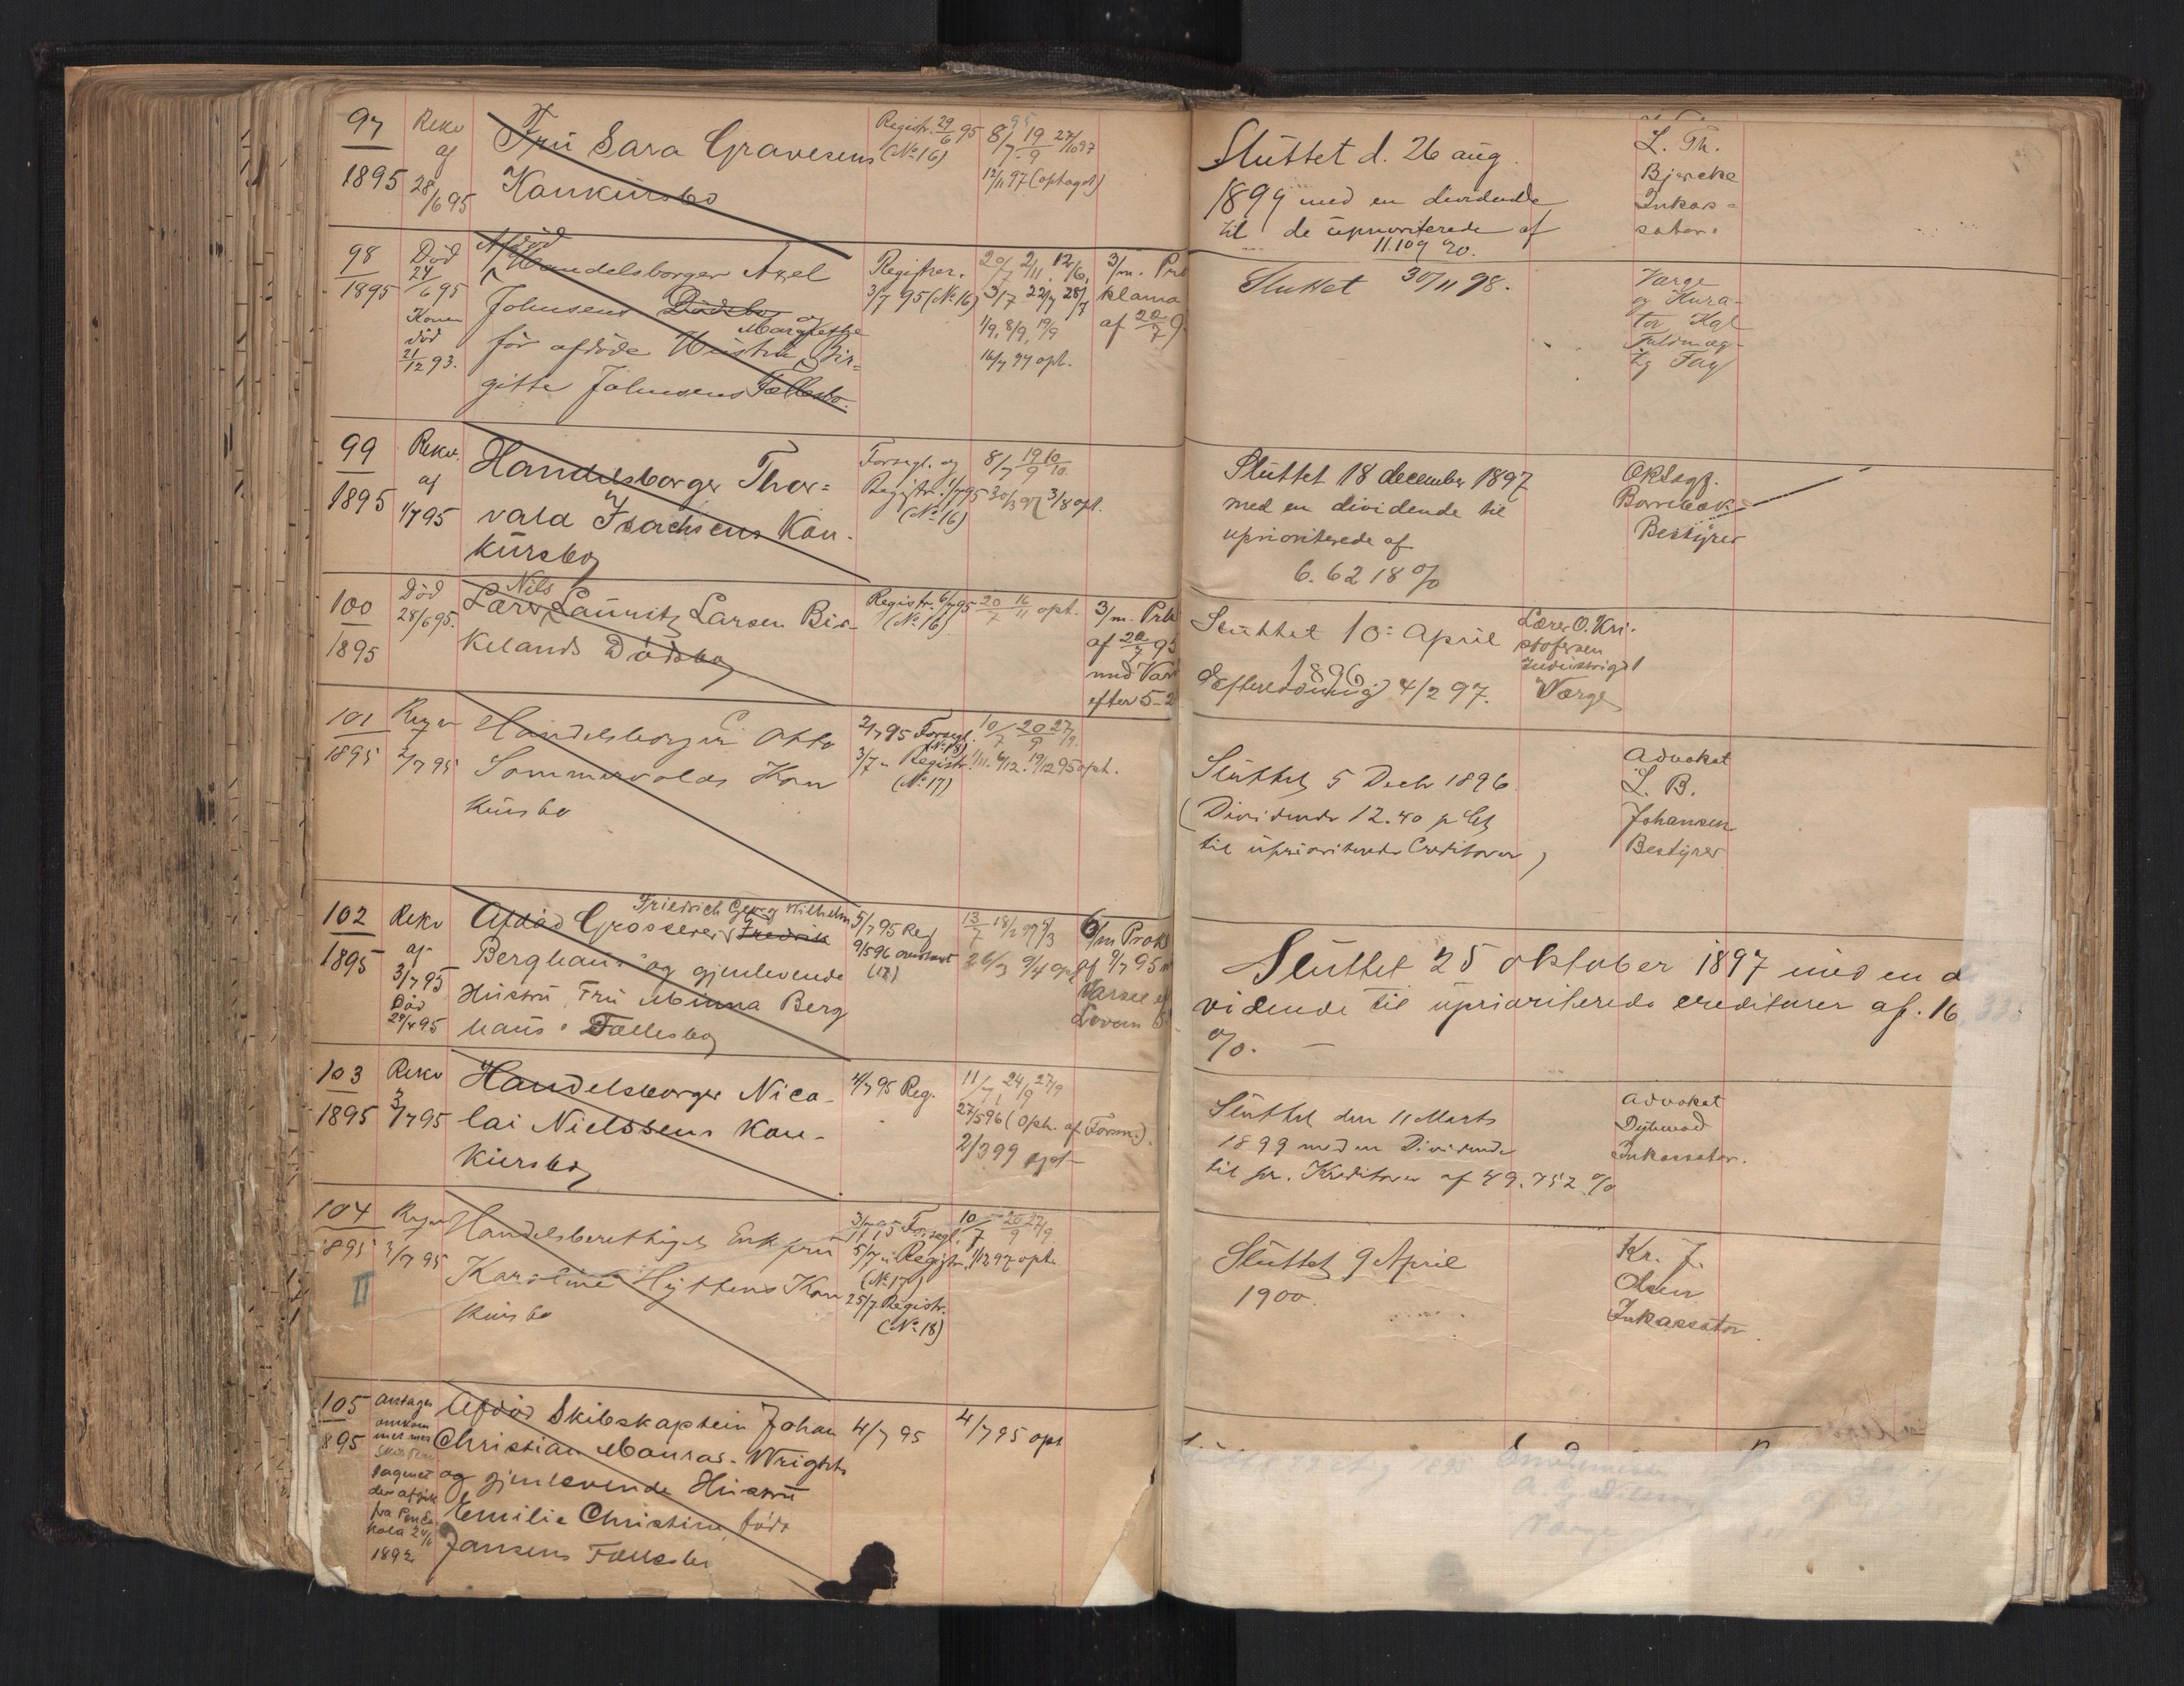 97
1895
Rekv
af
28/6 95
Fru Sara Gravesens
Konkursbo
Registr. 29/6 95
(No 16)
95
8/7 19/9 27/10 97
12/11 97 (optaget)
Sluttet d. 26 aug.
1899 med en dividende
til de upriorterede af
11.109 %.
L. Th.
Bjercke
Inkas=
sator.
98
1895
Död
24/6 95
Konen
död
21/12 93.
Afdöd
Handelsborger Axel
Johnsens Dödsbo og
för afdöde Hustru Margrethe Bir=
gitte Johnsens Fællesbo.
Registrer.
3/7 95 (No 16)
20/7 2/11 12/6,
3/7 22/7 28/7
1/9, 8/9, 19/9
16/7 97 opt.
3/m. Pro
klama
af 20/7 9
Sluttet 30/11 98.
Værge
og Kura-
tor Kgl
Fuldmæg-
tig Fay
99
1895
Rekv.
af
1/7 95
Handelsborger Thor=
vald Isachsens Kon-
kursbo
Forsegl. og
Registr. 1/7 95
(No 16)
8/7 19/9 10/10.
30/3 97 3/8 opt.
Sluttet 18 december 1897
med en dividende til
uprioriterede af
6.6218 %
ORSagf.
Borrebæk
Bestyrer
100
1895
Död
28/6 95.
Lærer Nils Lauritz Larsen Bir-
kelands Dödsbo
Registr. 6/7 95
(No 16)
20/7 16/11 opt.
3/m. Prk
af 20/7 95
med Var
efter 5-2
Sluttet 10 April
1896
Lærer O. Kri-
stofersen
Industrigd
Værge
4/2 97.
101
1895
2/7 95
Handelsborger C. Otto
Sommervolds Kon
kursbo
2/7 95 Forsegl.
3/7 " Registr.
(No 17)
10/7 20/9 27/9.
1/11. 6/12. 19/12 95 opt.
Sluttet 5 Decbr 1896
(Dividende 12.40 p Ct
til uprioriterede Creditorer)
Advokat
L. B.
Johansen
Bestyrer
102
1895
Rekv
af
3/7 95
Död
29/4 95
Afdöd Grosserer Fredrik Friedrich Georg Wilhelm
Berghaus og gjenlevende
Hustru, Fru Minna Berg
haus' Fællesbo
5/7 95 Reg
9/5 96
(18)
13/7
26/3 9/4 opt
6/m Prok
af 9/7 95 m
Varsel ef
Loven 5
Sluttet 25 oktober 1897 med en d
vidende til uprioriterede creditorer af. 16,
%. —
103
1895
Rekv
3/7 95
Handelsborger Nico-
lai Nielssens Kon-
kursbo
4/7 95 Reg.
11/7, 24/9 27/9
27/5 96 (Opt. af Form.).
2/3 99 opt
Sluttet den 11 Marts
1899 med en Dividende
til pr. Kreditorer af 49.752 %
Advokat
Dyhevad
Inkassator.
104
1895
II
3/7 95
Handelsberettiget Enkefru
Karoline Hyttens Kon
kursbo
3/7 95 Forsegl.
5/7 " Registr.
(No 17)
25/7. Registr.
(No 18)
10/7 20/9 27/9.
1/12 97 opt.
Sluttet 9 April
1900.
Kr. J.
Olsen
Inkassator.
105
895
antages
omkom
met med
der afgik
fra Pensa
kola 24/11
1892
Afdöd Skibskaptein Johan
Christian Monras-Wrights
og gjenlevende Hustru
Emilie Christine, född
Jansens Fællesbo
4/7 95
4/7 95 opt
1895
Værge